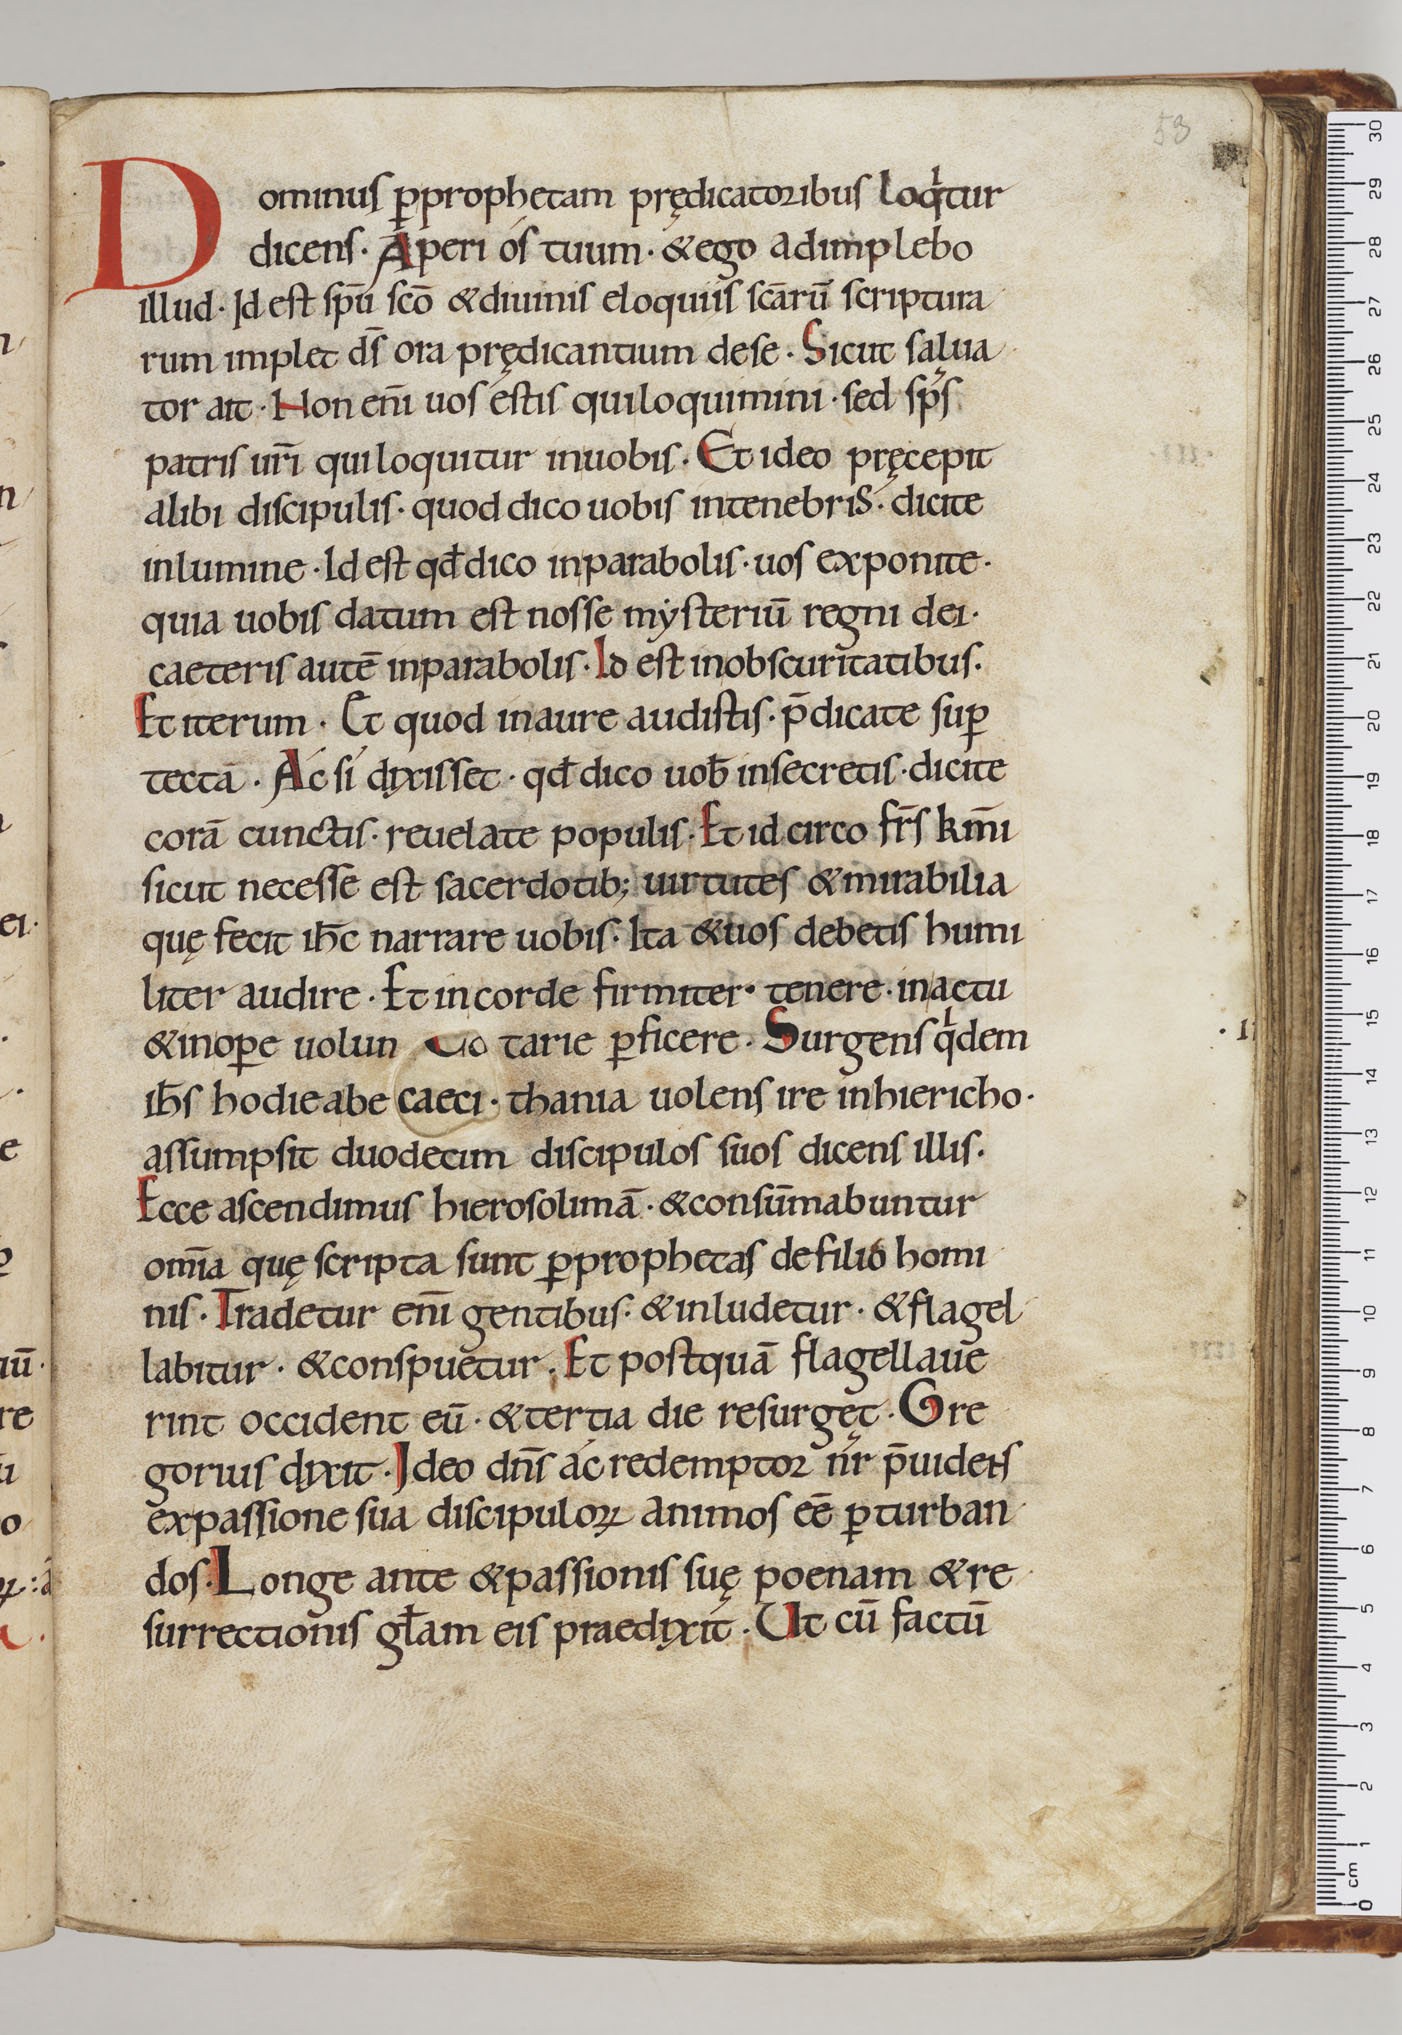 53
Dominus ꝑprophetam prędicatoribus loqͥtur
dicens · Aperi ós tuum · & ego adimplebo
illud · Id est sp̄u sc̄o & diuinis eloquiis sc̄arū scriptura
rum implet d̄s ora prędicantium de se · Sicut salua
tor ait · Non eni̅ uos éstis qui loquimini · sed sp̄s
patris ur̄i qui loquitur in uobis · Et ideo pręcepit
alibi discipulis · quod dico uobis in tenebris · dicite
in lumine · Id est qđ dico in parabolis · uos exponite ·
quia uobis datum est nosse mẏsteriū regni dei ·
caeteris autē in parabolis · Id est in obscuritatibus ·
Et iterum · Et quod in aure audistis · p̄dicate suꝑ
tecta · Ac si dixisset · qđ dico uoƀ in secretis · dicite
corā cunctis · reuelate populis · Et idcirco fr̄s km̄i
sicut necesse est sacerdotib; uirtutes & mirabilia
quę fecit ih̄c narrare uobis · Ita & uos debetis humi
liter audire · Et in corde firmiter · tenere · in actu
& in oꝑe uolun tarie ꝑficere · Surgens qͥdem
ih̄s hodie a be caeci · thania uolens ire in hiericho ·
assumpsit duodecim discipulos suos dicens illis ·
Ecce ascendimus hierosolimā · & consūmabuntur
om̄ia quę scripta sunt ꝑ prophetas de filio homi
nis · Tradetur eni̅ gentibus · & inludetur · & flagel
labitur · & conspuetur · Et postquā flagellaue
rint occident eū · & tertia die resurgęt · Gre
gorius dixit · Ideo dn̄s ac redemptor nr̄ p̄uidens
ex passione sua discipuloꝝ animos ee̅ ꝑturban
dos · Longe ante & passionis suę poenam & re
surrectionis gl̄am eis praedixit · Ut cū factū